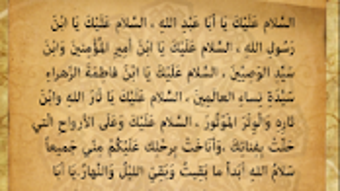 السَّلام عَلَيْكَ يَا أَبَا عَبْدِ اللهِ ، السَّلام عَلَيْكَ يَا ابْنَ
رَسُولِ اللهِ ، السَّلام عَلَيْكَ يَا ابْنَ أَمِيرِ المُؤْمِنينَ وَابْنَ
سَيِّدِ الوَصِيِّينَ ، السَّلام عَلَيْكَ يَا ابْنَ فَاطِمَةَ الزَّهراءِ
سَيِّدَةِ نِساءِ العالَمِينَ ، السَّلام عَلَيْكَ يَا ثَارَ اللهِ وابْنَ
ثَارِهِ وَالْوِتْرَ المَوْتُورَ ، السَّلام عَلَيْكَ وَعَلَى الأَرواحِ الَّتي
حَلَّتْ بِفِنائِكَ ،وَأَنَاخَتْ بِرَحْلِك عَلَيْكُمْ مِنِّي جَمِيعاً
سَلامُ اللهِ أَبَداً ما بَقِيتُ وَبَقِيَ اللَيْلُ وَالنَّهارُ.يَا أَبَا